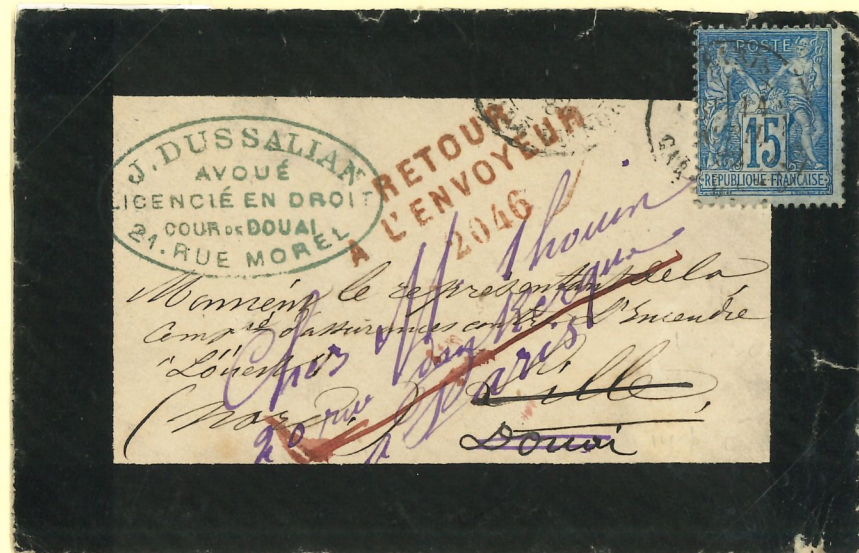 J. DUSSALIAN
AVOUÉ
LICENCIÉ EN DROIT
COUR DE DOUAI
21. RUE MOREL
RETOUR
A L'ENVOYEUR
2046
POSTE
15
REPUBLIQUE FRANÇAISE
Monsieur le représentant de la
Comp ie d'assurances contre l'Incendie
"L'Ouest"
(Nord)
Lille,
Douai
Chez M Thouin
20 rue
Paris